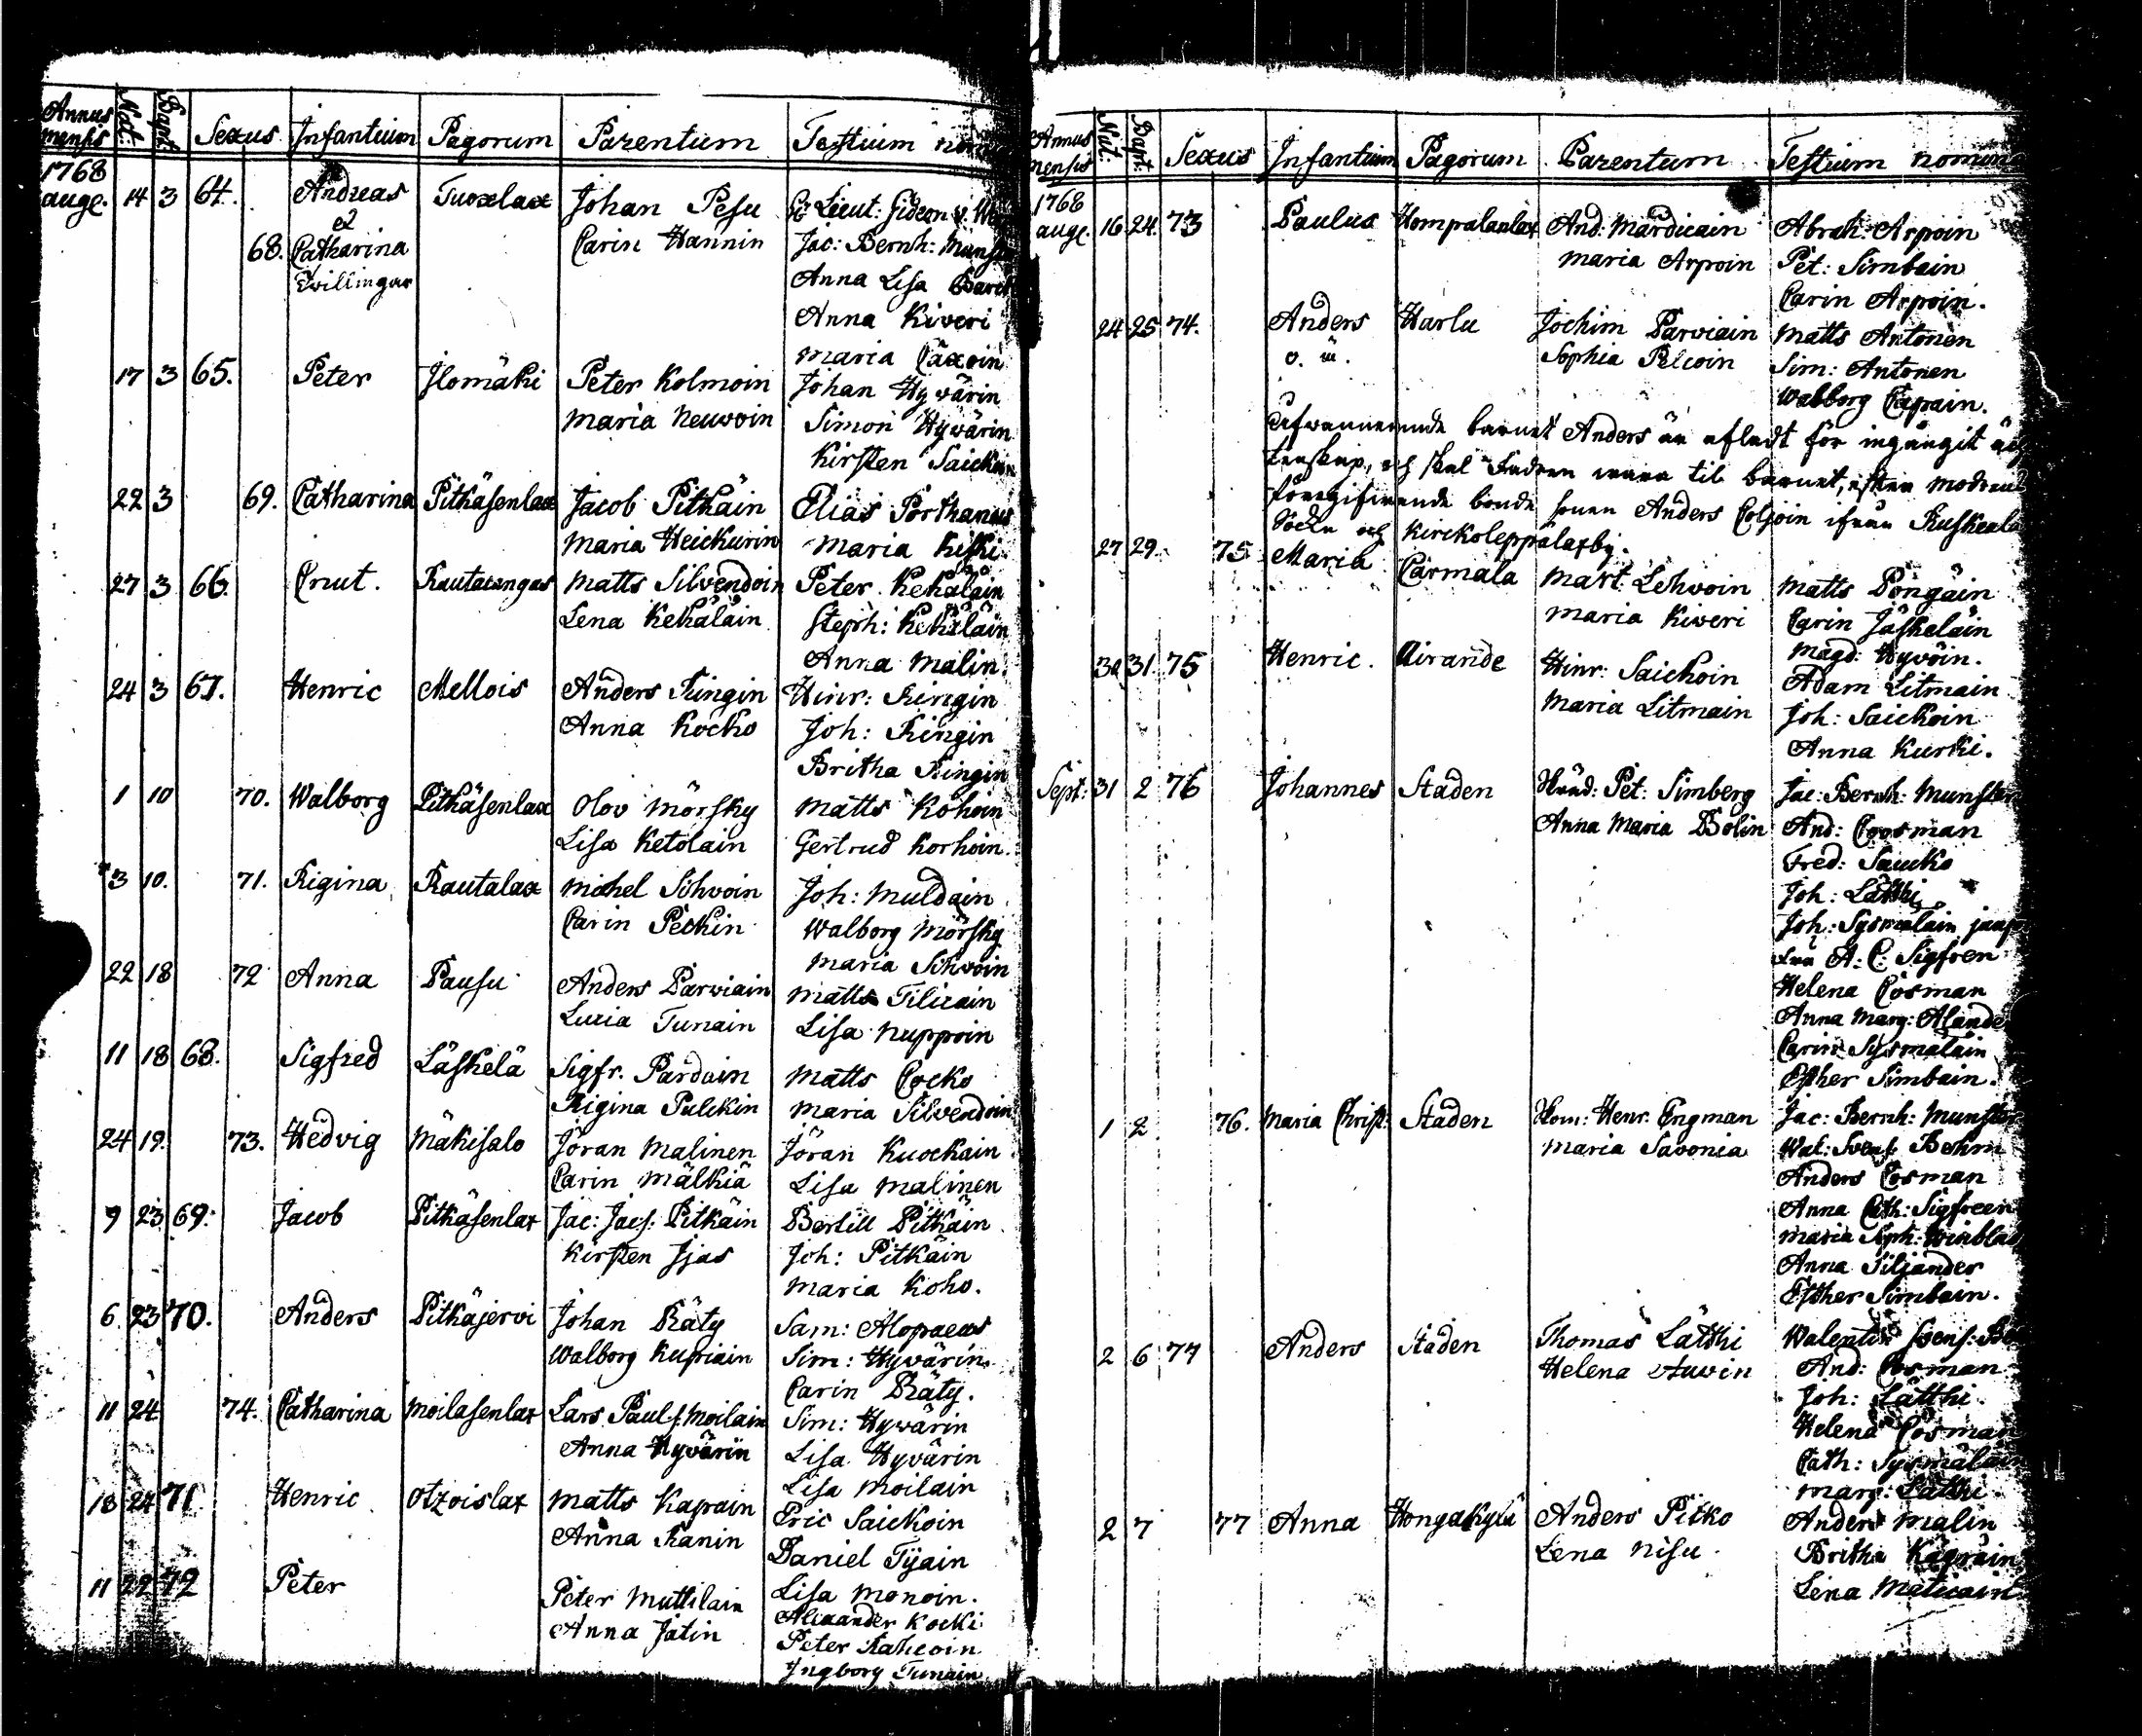 Annus mensis Nat: Bapt: Sexus Infantium Pagorum Parentum Testium
1768
aug. 14 3 64. Andreas Tuoxlax Johan Pesu Lieut: Gideon v.
&
68. Catharina Carin Hannin Jac: Bernh: Munster
Tvillingar Anna Lisa
Anna Kiveri
Maria
17 3 65. Peter Jlomäki Peter Kolmoin Johan Hyvärin
Maria Neuvoin Simon Hyvärin
Kirsten Saickoin
22 3 69. Catharina Pitkäsenlax Jacob Pitkäin Elias Porthanus
Maria Heickurin Maria Kiski
27 3 66. Cnut. Rautacangas Matts Silvendoin Peter Kekäläin
Lena Kekäläin Steph: Kekäläin
Anna Malin.
24 3 67. Henric Mellois Anders Ringin Hinr: Ringin
Anna Kocko Joh: Ringin
Britha Ringin
1 10 70. Walborg Pitkäsenlax Olov Mörsky Matts Kohoin
Lisa Ketolain Gertrud Korhoin.
3 10. 71. Rigina Rautalax Michel Sihvoin Joh: Muldain
Carin Peckin Walborg Mörsky
Maria Sihvoin
22 18 72 Anna Pausu Anders Parviain Matts Tilicain
Lucia Tunain Lisa Nuppoin
11 18 68. Sigfred Läskelä Sigfr. Pardain Matts Cocko
Rigina Pulckin Maria Silvendoin
24 19. 73. Hedvig Mäkisalo Jöran Malinen Jöran Kuockain
Carin Mälkiä Lisa Malinen
9 23 69. Jacob Pitkäsenlax Jac: Jacs: Pitkäin Bertill Pitkäin
Kirsten Ijas Joh: Pitkäin
Maria Koho.
6 23 70. Anders Pitkäjervi Johan Räty Sam: Alopaeus
Walborg Kupiain Sim: Hyvärin
Carin Räty.
11 24 74. Catharina Moilasenlax Lars Pauls. Moilain Sim: Hyvärin
Anna Hyvärin Lisa Hyvärin
Lisa Moilain
18 24 71 Henric Otzoislax Matts Kapain Eric Saickoin
Anna Ranin Daniel Tijain
Lisa Monoin.
11 22 72 Peter Peter Muttilain Alexander Kocki
Anna Jätin Peter
Ingborg Tunain
Annus mensis Nat: Bapt: Sexus Infantium Pagorum Parentum Testium nomina
1768
aug. 16 24. 73 Paulus Hompalanlax And: Mardicain Abrah: Arpoin
Maria Arpoin Pet: Simbain
Carin Arpoin.
24 25 74. Anders Harlu Jochim Parviain Matts Antonen
o. ä. Sophia Pelcoin Sim: Antonen
Walborg Capain.
barnet Anders är afladt för ingångit
och skal Fadren wara til barnet, efter modrens
föregifwande bonde sonen Anders ifrån Ruskeala
Sockn och Kirckoleppälaxby.
27 29. 75 Maria Carmala Mart: Lehvoin Matts Pöngäin
Maria Kiveri Carin Jäskeläin
Magd: Hyvöin.
30 31. 75 Henric. Kirande Hinr: Saickoin Adam Litmain
Maria Litmain Joh: Saickoin
Anna Kurki.
Sept: 31 2 76 Johannes Staden Pet: Simberg Jac: Bernh: Munster
Anna Maria Bolin And: Cosman
Fred: Saucko
Joh: Lätthi
Joh: Sysmäläin
Fru A: C: Sigfren
Helena Cosman
Anna Marg: Alander
Carin Sysmäläin
Esther Simbain.
1 2 76. Maria Christ: Staden Hom: Henr: Engman Jac: Bernh: Munster
Maria Savonia Wal: Svens Behm
Anders Cosman
Anna Cath: Sigfreen
Maria Soph: Winblad
Anna Siljander
Esther Simbain.
2 6 77 Anders Staden Thomas Lätthi Walentin Svens:
Helena Auvin And: Cosman
Joh: Lätthi
Helena Cosman
Cath: Sysmäläin
Marg: Lätthi
2 7 77 Anna Hongakylä Anders Pitko Anders Malin
Lena Nisu. Britha
Lena Maticain